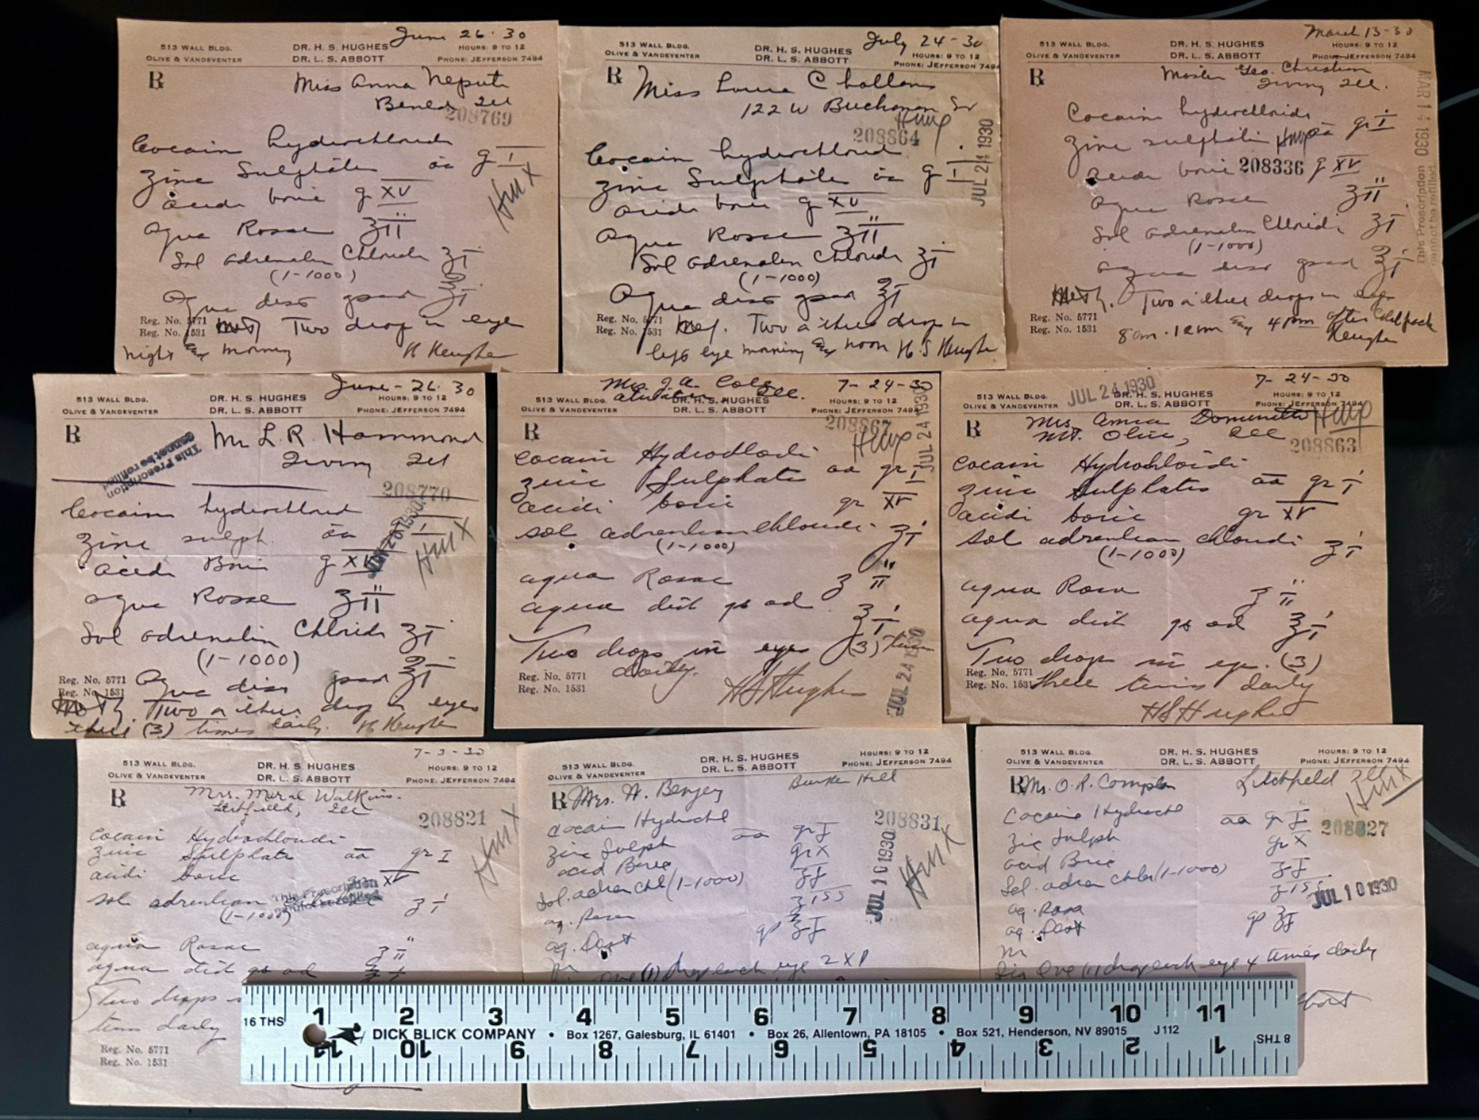 513 WALL BLDG.
OLIVE & VANDEVENTER
DR. H. S. HUGHES
DR. L. S. ABBOTT
June 26·30
HOURS: 9 TO 12
PHONE: JEFFERSON 7494
℞ Miss Anna Neputi
208769
Cocain hydrochlorid
Zinc Sulphate āā g I
Acidi boric g XV
Aqua Rosae ʒ II
Sol adrenalin Chlorid ʒ I
(1-1000)
Aqua dist qsad ℥ I
Reg. No. 5771
Reg. No. 1531
Two drop in eye
night & morning
H Hughes
513 WALL BLDG.
OLIVE & VANDEVENTER
DR. H. S. HUGHES
DR. L. S. ABBOTT
July 24-30
HOURS: 9 TO 12
PHONE: JEFFERSON 7494
℞ Miss
122 W Buchanan
208864
JUL 24 1930
Cocain hydrochlorid
Zinc Sulphate āā g I
Acidi boric g XV
Aqua Rosae ʒ II
Sol adrenalin Chlorid ʒ I
(1-1000)
Aqua dist qsad ℥ I
Reg. No. 5771
Reg. No. 1531
Two or three drop in
left eye morning & noon H S Hughes
513 WALL BLDG.
OLIVE & VANDEVENTER
DR. H. S. HUGHES
DR. L. S. ABBOTT
March 13-30
HOURS: 9 TO 12
PHONE: JEFFERSON 7494
℞ Master Geo. Christian
Irving Ill.
MAR 14 1930
This Prescription
cannot be refilled
Cocain hydrochlorid
Zinc sulphate āā gr I
Acidi boric 208336 g XV
Aqua Rosae ʒ II
Sol adrenalin Chlorid ʒ I
(1-1000)
Aqua dist qsad ℥ I
Reg. No. 5771
Reg. No. 1531
Two or three drops in eyes
8 am. 12 nm & 4 pm after
Hughes
513 WALL BLDG.
OLIVE & VANDEVENTER
DR. H. S. HUGHES
DR. L. S. ABBOTT
June-26·30
HOURS: 9 TO 12
PHONE: JEFFERSON 7494
℞ Mr L. R. Hammond
Irving Ill
This Prescription
cannot be refilled
208770
Cocain hydrochlorid
Zinc sulph. āā I
Acidi Boric g XV
Aqua Rosae ʒ II
Sol adrenalin Chlorid ʒ I
(1-1000)
Aqua dist qsad ℥ I
Reg. No. 5771
Reg. No. 1531
Two or three drop in eyes
three (3) times daily. H Hughes
Mrs. J. A. Cole
Ill.
7-24-30
513 WALL BLDG.
OLIVE & VANDEVENTER
DR. H. S. HUGHES
DR. L. S. ABBOTT
HOURS: 9 TO 12
PHONE: JEFFERSON 7494
℞
208867
JUL 24 1930
Cocain Hydrochloridi
Zinc Sulphate āā gr I
acidi boric gr XV
sol adrenlin chloridi ʒ I
(1-1000)
aqua Rosae ʒ II
aqua dist qs ad ℥ I
Two drops in eyes (3) times
daily.
Reg. No. 5771
Reg. No. 1531
H S Hughes
JUL 24 1930
JUL 24 1930
7-24-30
513 WALL BLDG.
OLIVE & VANDEVENTER
DR. H. S. HUGHES
DR. L. S. ABBOTT
HOURS: 9 TO 12
PHONE: JEFFERSON 7494
℞ Mrs. Domenitte
Mt. Olive, Ill
208863
Cocain Hydrochloridi
Zinc Sulphates āā gr I
acidi boric gr XV
sol adrenalin chloridi ʒ I
(1-1000)
aqua Rosa ʒ II
aqua dist qs ad ℥ I
Two drops in eye. (3)
three times daily
Reg. No. 5771
Reg. No. 1531
H S Hughes
7-3-30
513 WALL BLDG.
OLIVE & VANDEVENTER
DR. H. S. HUGHES
DR. L. S. ABBOTT
HOURS: 9 TO 12
PHONE: JEFFERSON 7494
℞ Mrs. Watkins.
Litchfield, Ill
208821
Cocain Hydrochloridi
Zinc Sulphate āā gr I
acidi boric XV
This Prescription
cannot be refilled
sol adrenlin ʒ I
(1-1000)
aqua Rosae ʒ II
aqua dist qs ad
Two drops
times daily
Reg. No. 5771
Reg. No. 1531
513 WALL BLDG.
OLIVE & VANDEVENTER
DR. H. S. HUGHES
DR. L. S. ABBOTT
HOURS: 9 TO 12
PHONE: JEFFERSON 7494
℞ Mrs. H. Benzey Bunker Hill
208831
JUL 10 1930
Cocain Hydrochl
Zinc Sulph āā gr I
acid Boric gr X
Sol. adren Chl (1-1000) ʒ I
aq. Rosa ʒ iss
aq. Dest qs ℥ I
M
one (1) drop each eye 2 X P
513 WALL BLDG.
OLIVE & VANDEVENTER
DR. H. S. HUGHES
DR. L. S. ABBOTT
HOURS: 9 TO 12
PHONE: JEFFERSON 7494
℞ Mr. O. R. Compton Litchfield Ill
208827
JUL 10 1930
Cocaine Hydrochl āā gr I
Zinc Sulph
acid Boric gr X
Sol. adren Chlor (1-1000) ʒ I
aq. Rosa ʒ iss
aq. Dest qs ℥ I
M
Sig One (1) drop each eye 4 times daily
16 THS 1 2 3 4 5 6 7 8 9 10 11
DICK BLICK COMPANY • Box 1267, Galesburg, IL 61401 • Box 26, Allentown, PA 18105 • Box 521, Henderson, NV 89015 J112
11 10 9 8 7 6 5 4 3 2 1 8 THS